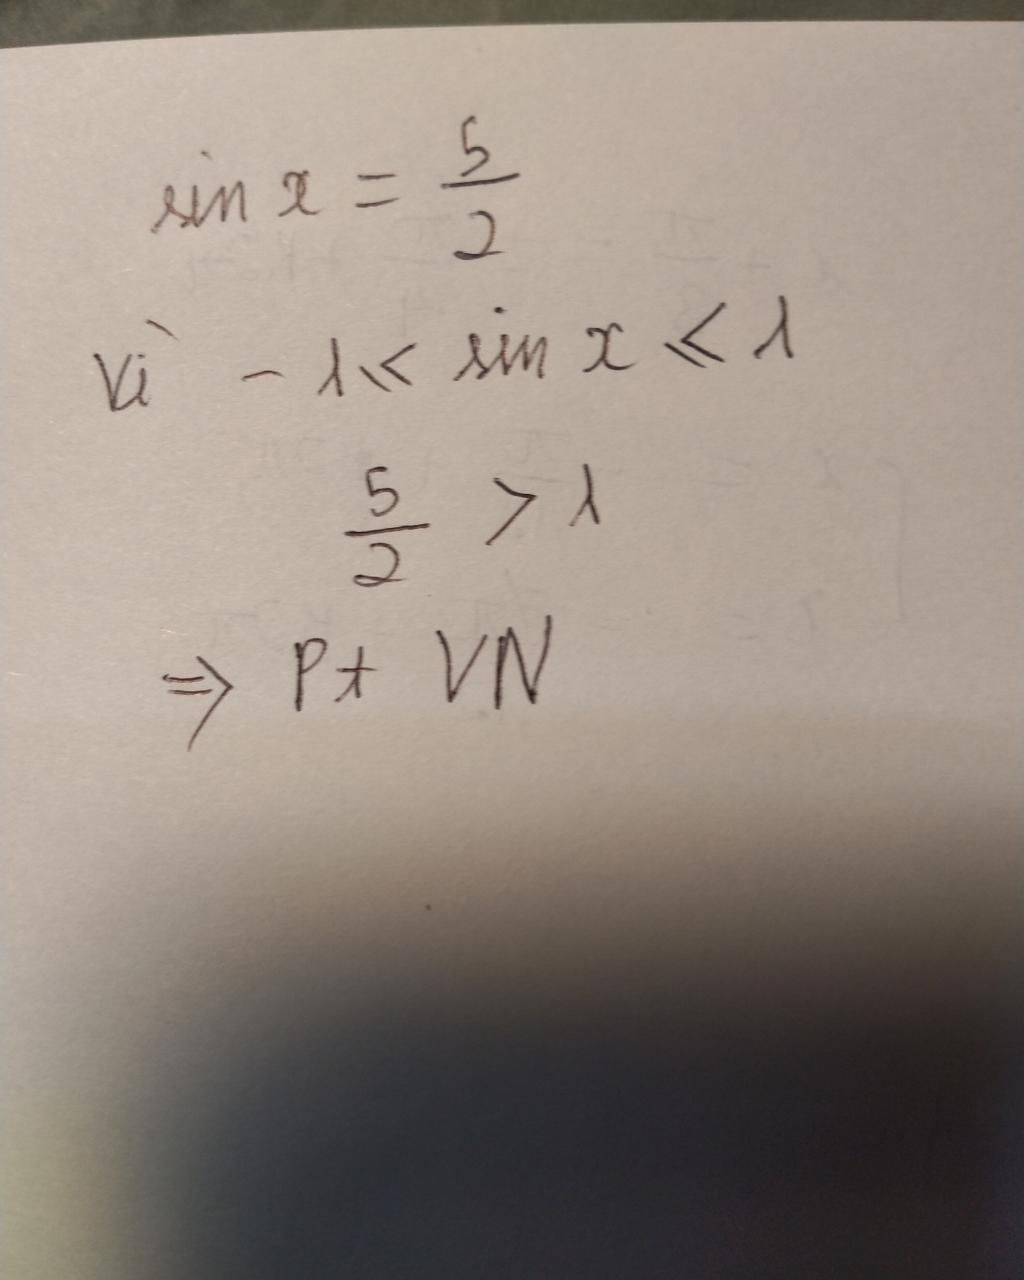 sin x = 5/2
Vì -1 ≤ sin x ≤ 1
5/2 > 1
⇒ Pt VN